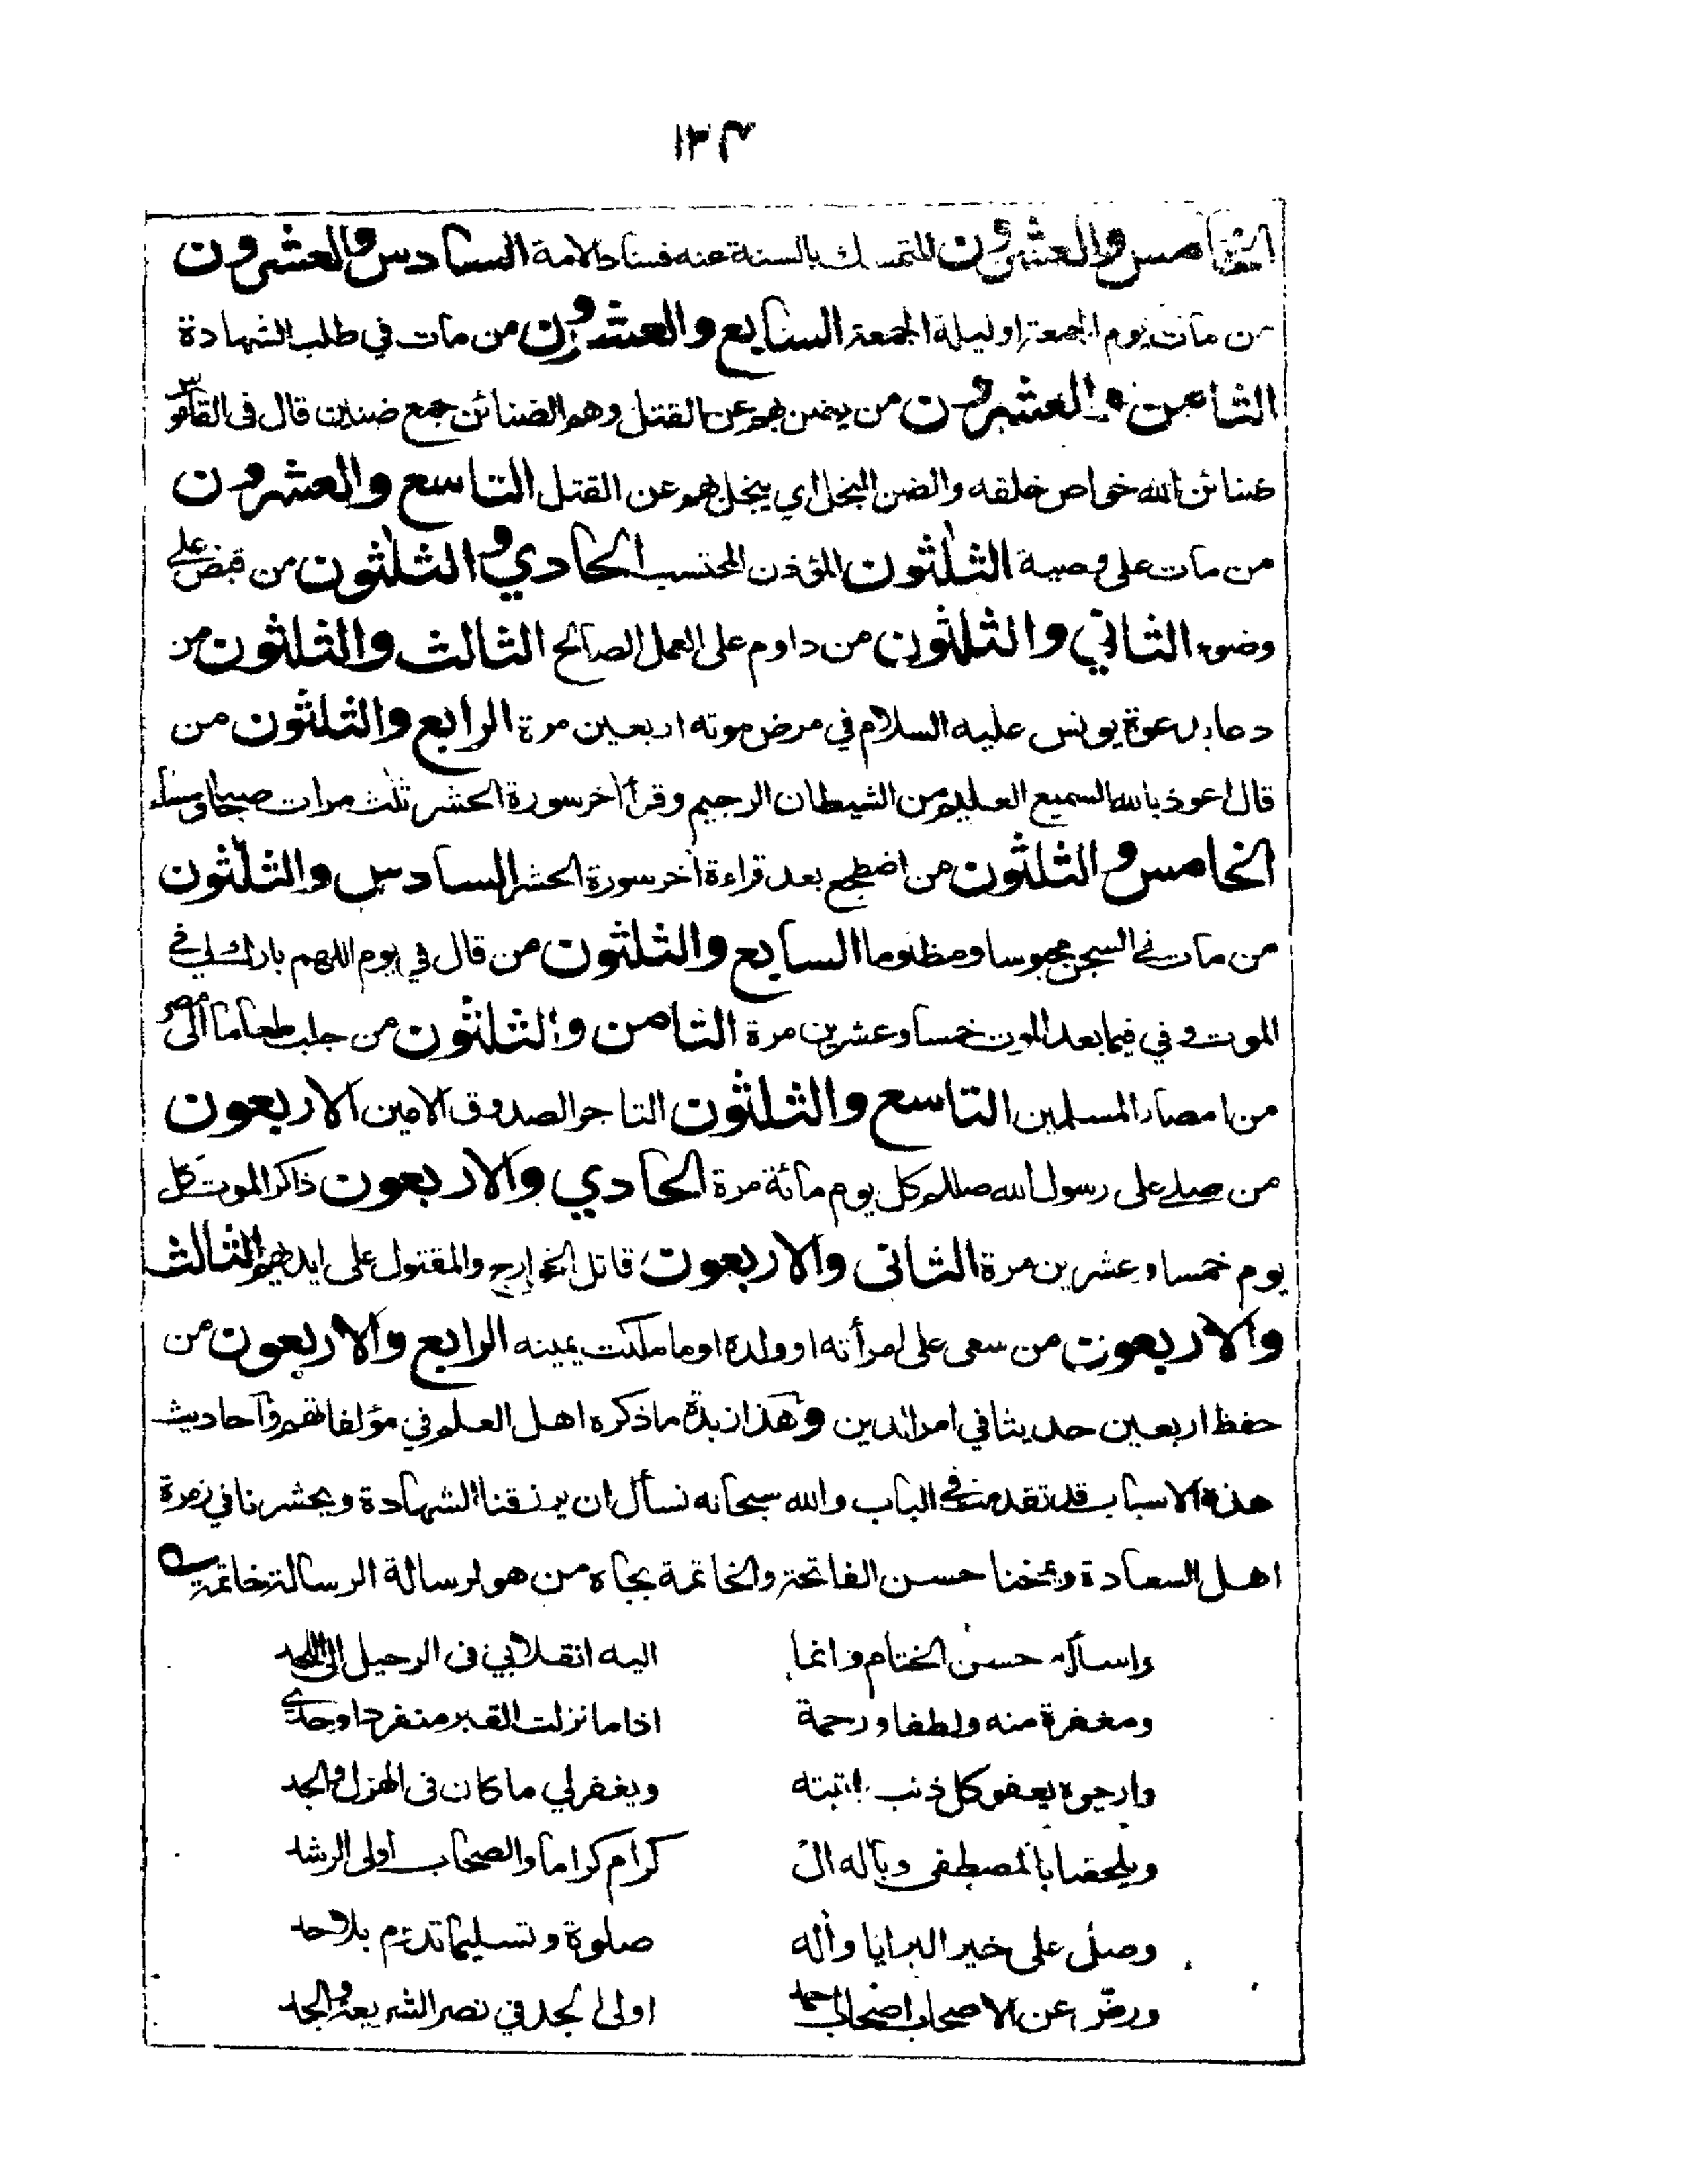 ١٣٤
الخامس والعشرون المتمسك بالسنة عند فساد الامة السادس والعشرون
من مات يوم الجمعة او ليلة الجمعة السابع والعشرون من مات في طلب الشهادة
الثامن والعشرون من يضن بهم عن القتل وهم الضنائن جمع ضنين قال في القاموس
ضنائن الله خواص خلقه والضن البخل اي يبخل بهم عن القتل التاسع والعشرون
من مات على وصية الثلثون المؤذن المحتسب الحادي والثلثون من قبض على
وضوء الثاني والثلثون من داوم على العمل الصالح الثالث والثلثون من
دعا بدعوة يونس عليه السلام في مرض موته اربعين مرة الرابع والثلثون من
قال اعوذ بالله السميع العليم من الشيطان الرجيم وقرأ آخر سورة الحشر ثلث مرات صباحا ومساء
الخامس والثلثون من اضطجع بعد قراءة آخر سورة الحشر السادس والثلثون
من مات في السجن محبوسا ومظلوما السابع والثلثون من قال في يوم اللهم بارك لي في
الموت وفي فيما بعد الموت خمسا وعشرين مرة الثامن والثلثون من جلب طعاما الى مصر
من امصار المسلمين التاسع والثلثون التاجر الصدوق الامين الاربعون
من صلى على رسول الله صللم كل يوم مائة مرة الحادي والاربعون ذاكر الموت كل
يوم خمسا وعشرين مرة الثاني والاربعون قاتل الخوارج والمقتول على ايديهم الثالث
والاربعون من سعى على امرأته او ولده او ما ملكت يمينه الرابع والاربعون من
حفظ اربعين حديثا في امر الدين وهذا زبدة ما ذكره اهل العلم في مؤلفاتهم وآحاديث
هذه الاسباب قد تقدمت في الباب والله سبحانه نسأل ان يرزقنا الشهادة ويحشرنا في زمرة
اهل السعادة ويمنحنا حسن الفاتحة والخاتمة بجاه من هو لرسالة الرسالة خاتمة
واسأله حسن الختام وانما اليه انقلابي في الرحيل الى اللحد
ومغفرة منه ولطفا ورحمة اذا ما نزلت القبر منفردا وحدي
وارجوه يعفو كل ذنب اتيته ويغفر لي ما كان في الهزل والجد
ويلحقنا بالمصطفى وبآله ال كرام كراما والصحاب أولى الرشد
وصل على خير البرايا وآله صلوة وتسليما تدوم بلا حد
ورض عن الاصحاب اصحاب احمد اولى الجد في نصر الشريعة والجد